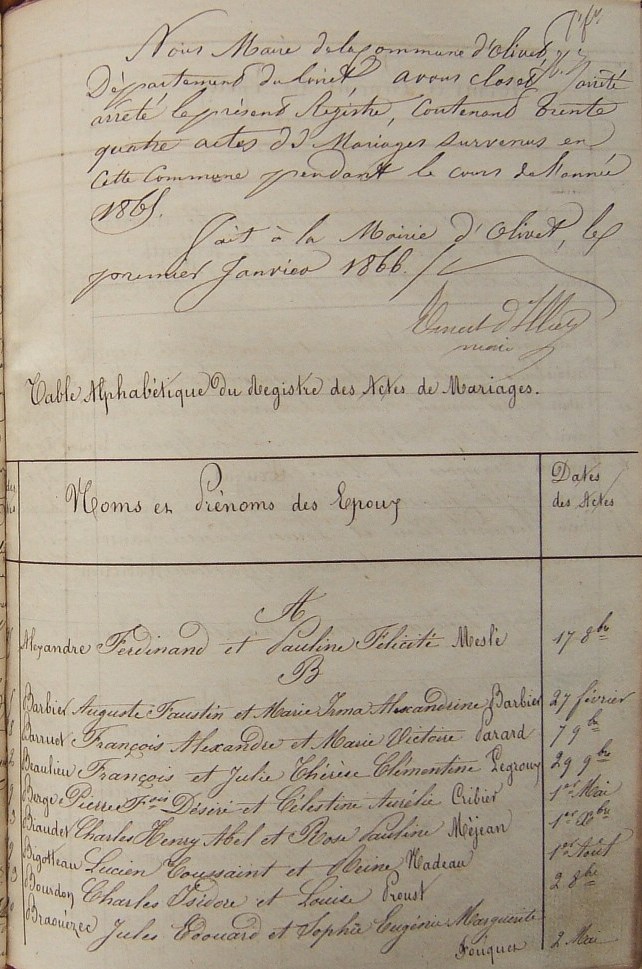 Nous Maire de la Commune d'Olivet,
Département du Loiret avons clos et arrêté
arrêté le présent Registre, contenant trente
quatre actes de Mariages survenus en
cette Commune pendant le cours de l'année
1865.
Fait à la Mairie d'Olivet, le
premier Janvier 1866.
maire
Table Alphabétique du Registre des Actes de Mariages.
Noms et Prénoms des Epoux
Dates
des Actes
A
Alexandre Ferdinand et Pauline Félicité Meslé 17 8bre
B
Barbier Auguste Faustin et Marie Irma Alexandrine Barbier 27 février
Barruet François Alexandre et Marie Victoire Parard 7 9bre
Beaulieu François et Julie Thérèse Clémentine Legroux 29 9bre
Berge Pierre Fçois Désiré et Célestine Aurélie Cribier 1er Mai
Biaudet Charles Henry Abel et Rose Pauline Méjean 1er Xbre
Bigotteau Lucien Toussaint et Reine Nadeau 1er Août
Bourdon Charles Isidore et Louise Proust 2 8bre
Braouézec Jules Edouard et Sophie Eugénie Marguerite
Fouquet 2 Mai